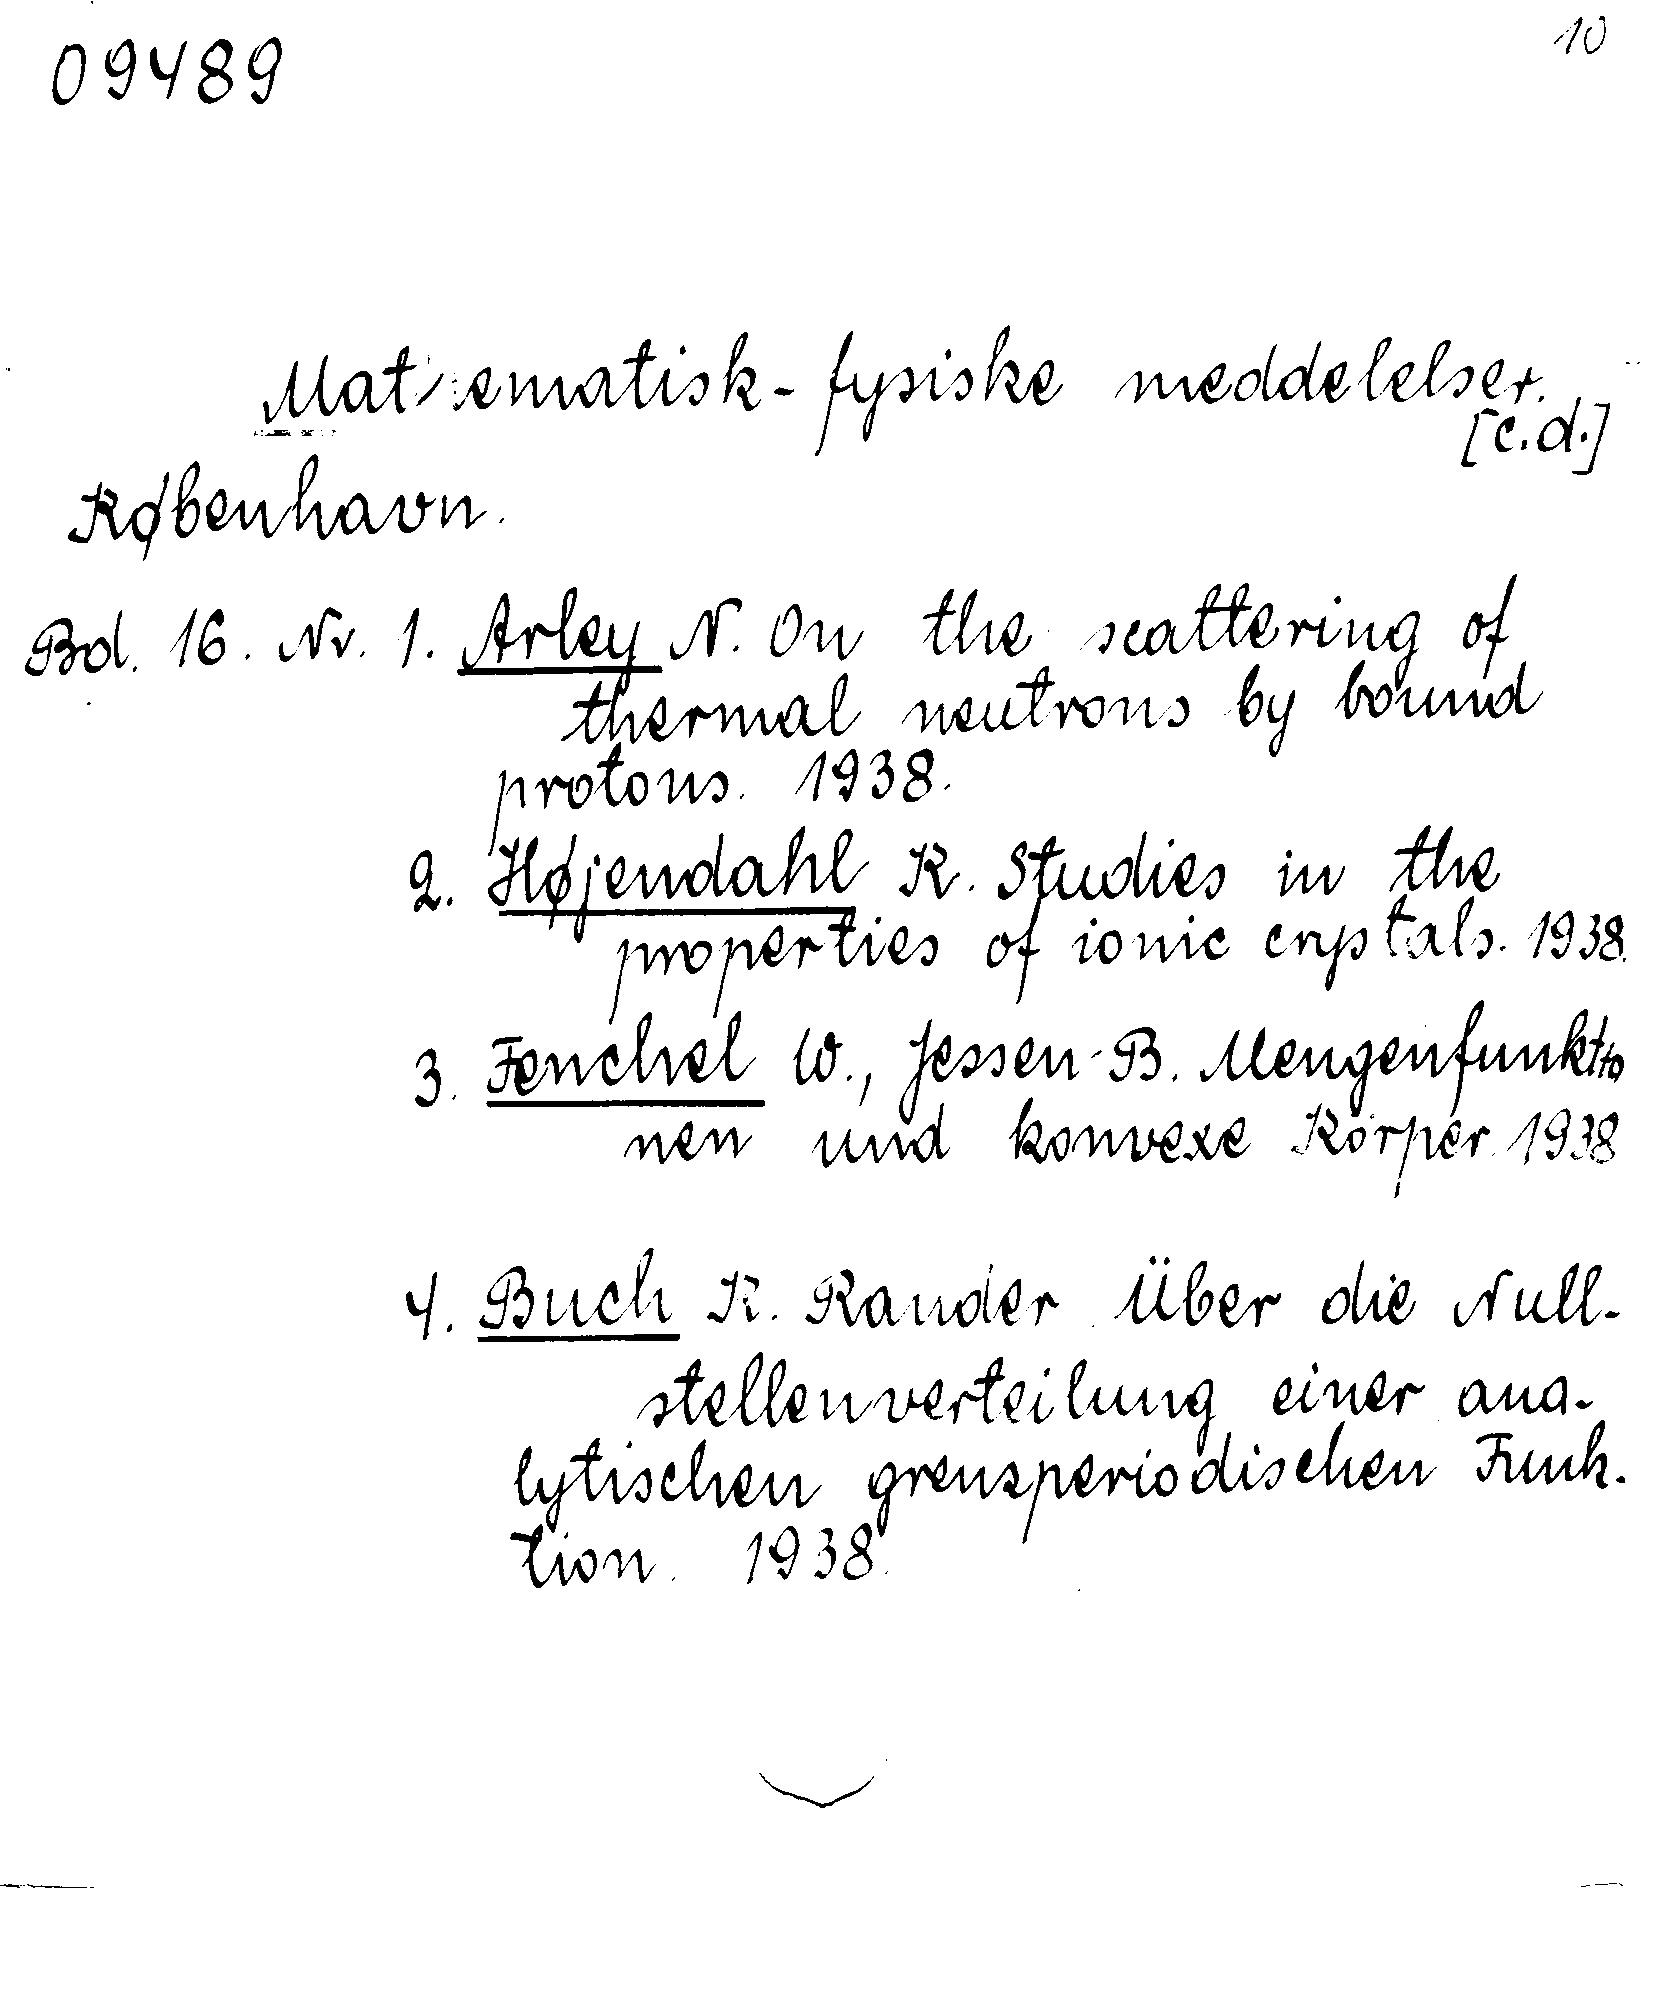 09489
10
Matematisk-fysiske meddelelser.
[c.d.]
København.
Bd. 16. Nr. 1. Arley N. On the scattering of
thermal neutrons by bound
protons. 1938.
2. Højendahl K. Studies in the
properties of ionic crystals. 1938.
3. Fenchel W., Jessen B. Mengenfunktio
nen und konvexe Körper. 1938
4. Buch K. Rander Über die Null-
stellenverteilung einer ana-
lytischen grenzperiodischen Funk-
tion. 1938.